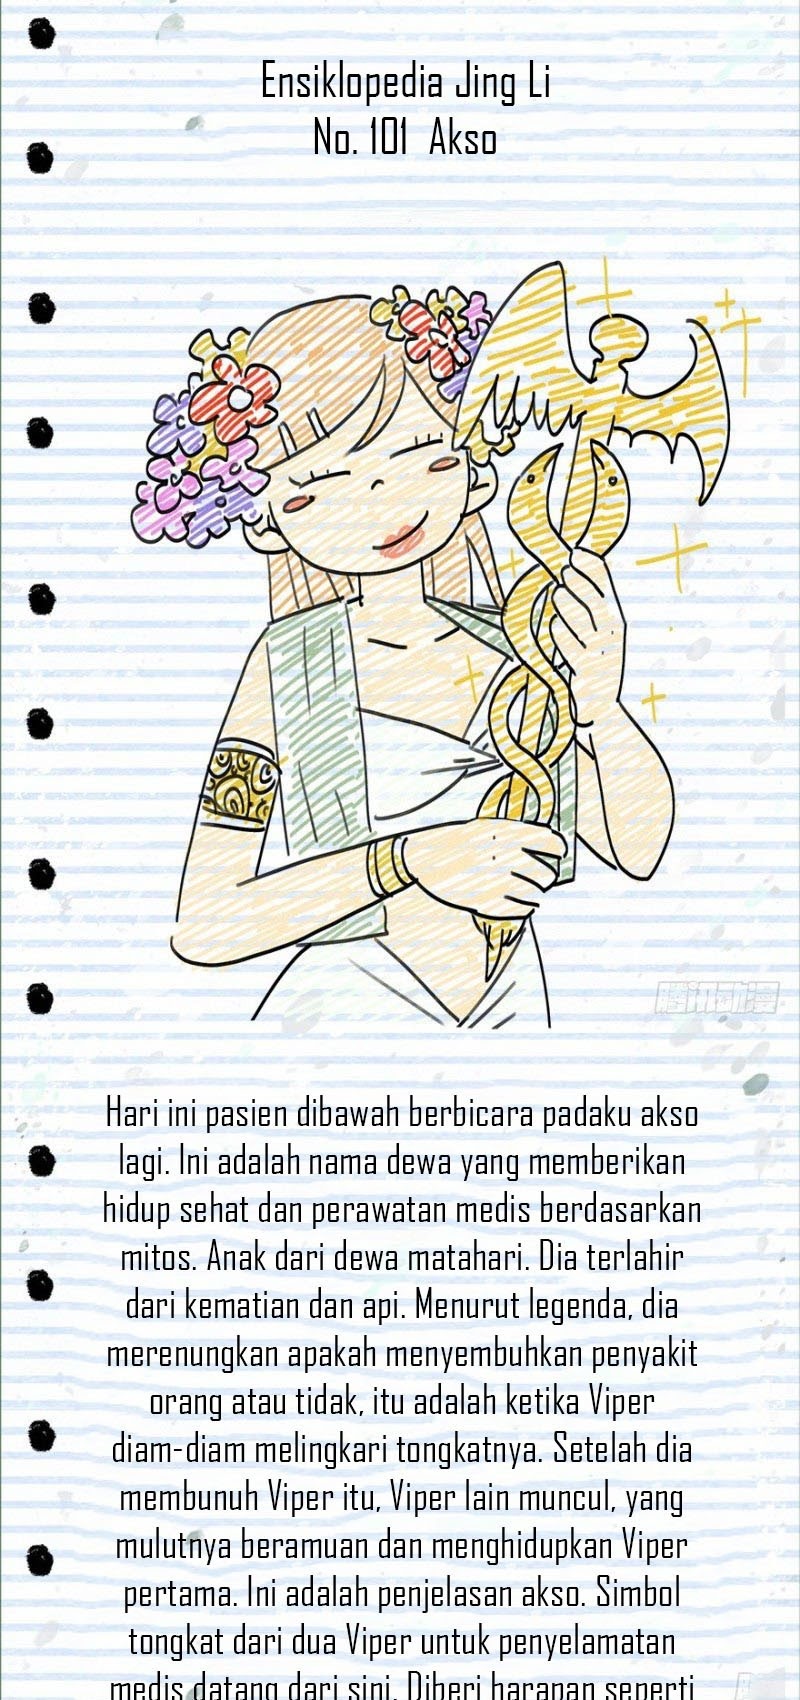 Ensiklopedia Jing Li
No. 101 Akso
腾讯动漫
Hari ini pasien dibawah berbicara padaku akso
lagi. Ini adalah nama dewa yang memberikan
hidup sehat dan perawatan medis berdasarkan
mitos. Anak dari dewa matahari. Dia terlahir
dari kematian dan api. Menurut legenda, dia
merenungkan apakah menyembuhkan penyakit
orang atau tidak, itu adalah ketika Viper
diam-diam melingkari tongkatnya. Setelah dia
membunuh Viper itu, Viper lain muncul, yang
mulutnya beramuan dan menghidupkan Viper
pertama. Ini adalah penjelasan akso. Simbol
tongkat dari dua Viper untuk penyelamatan
medis datang dari sini. Diberi harapan seperti